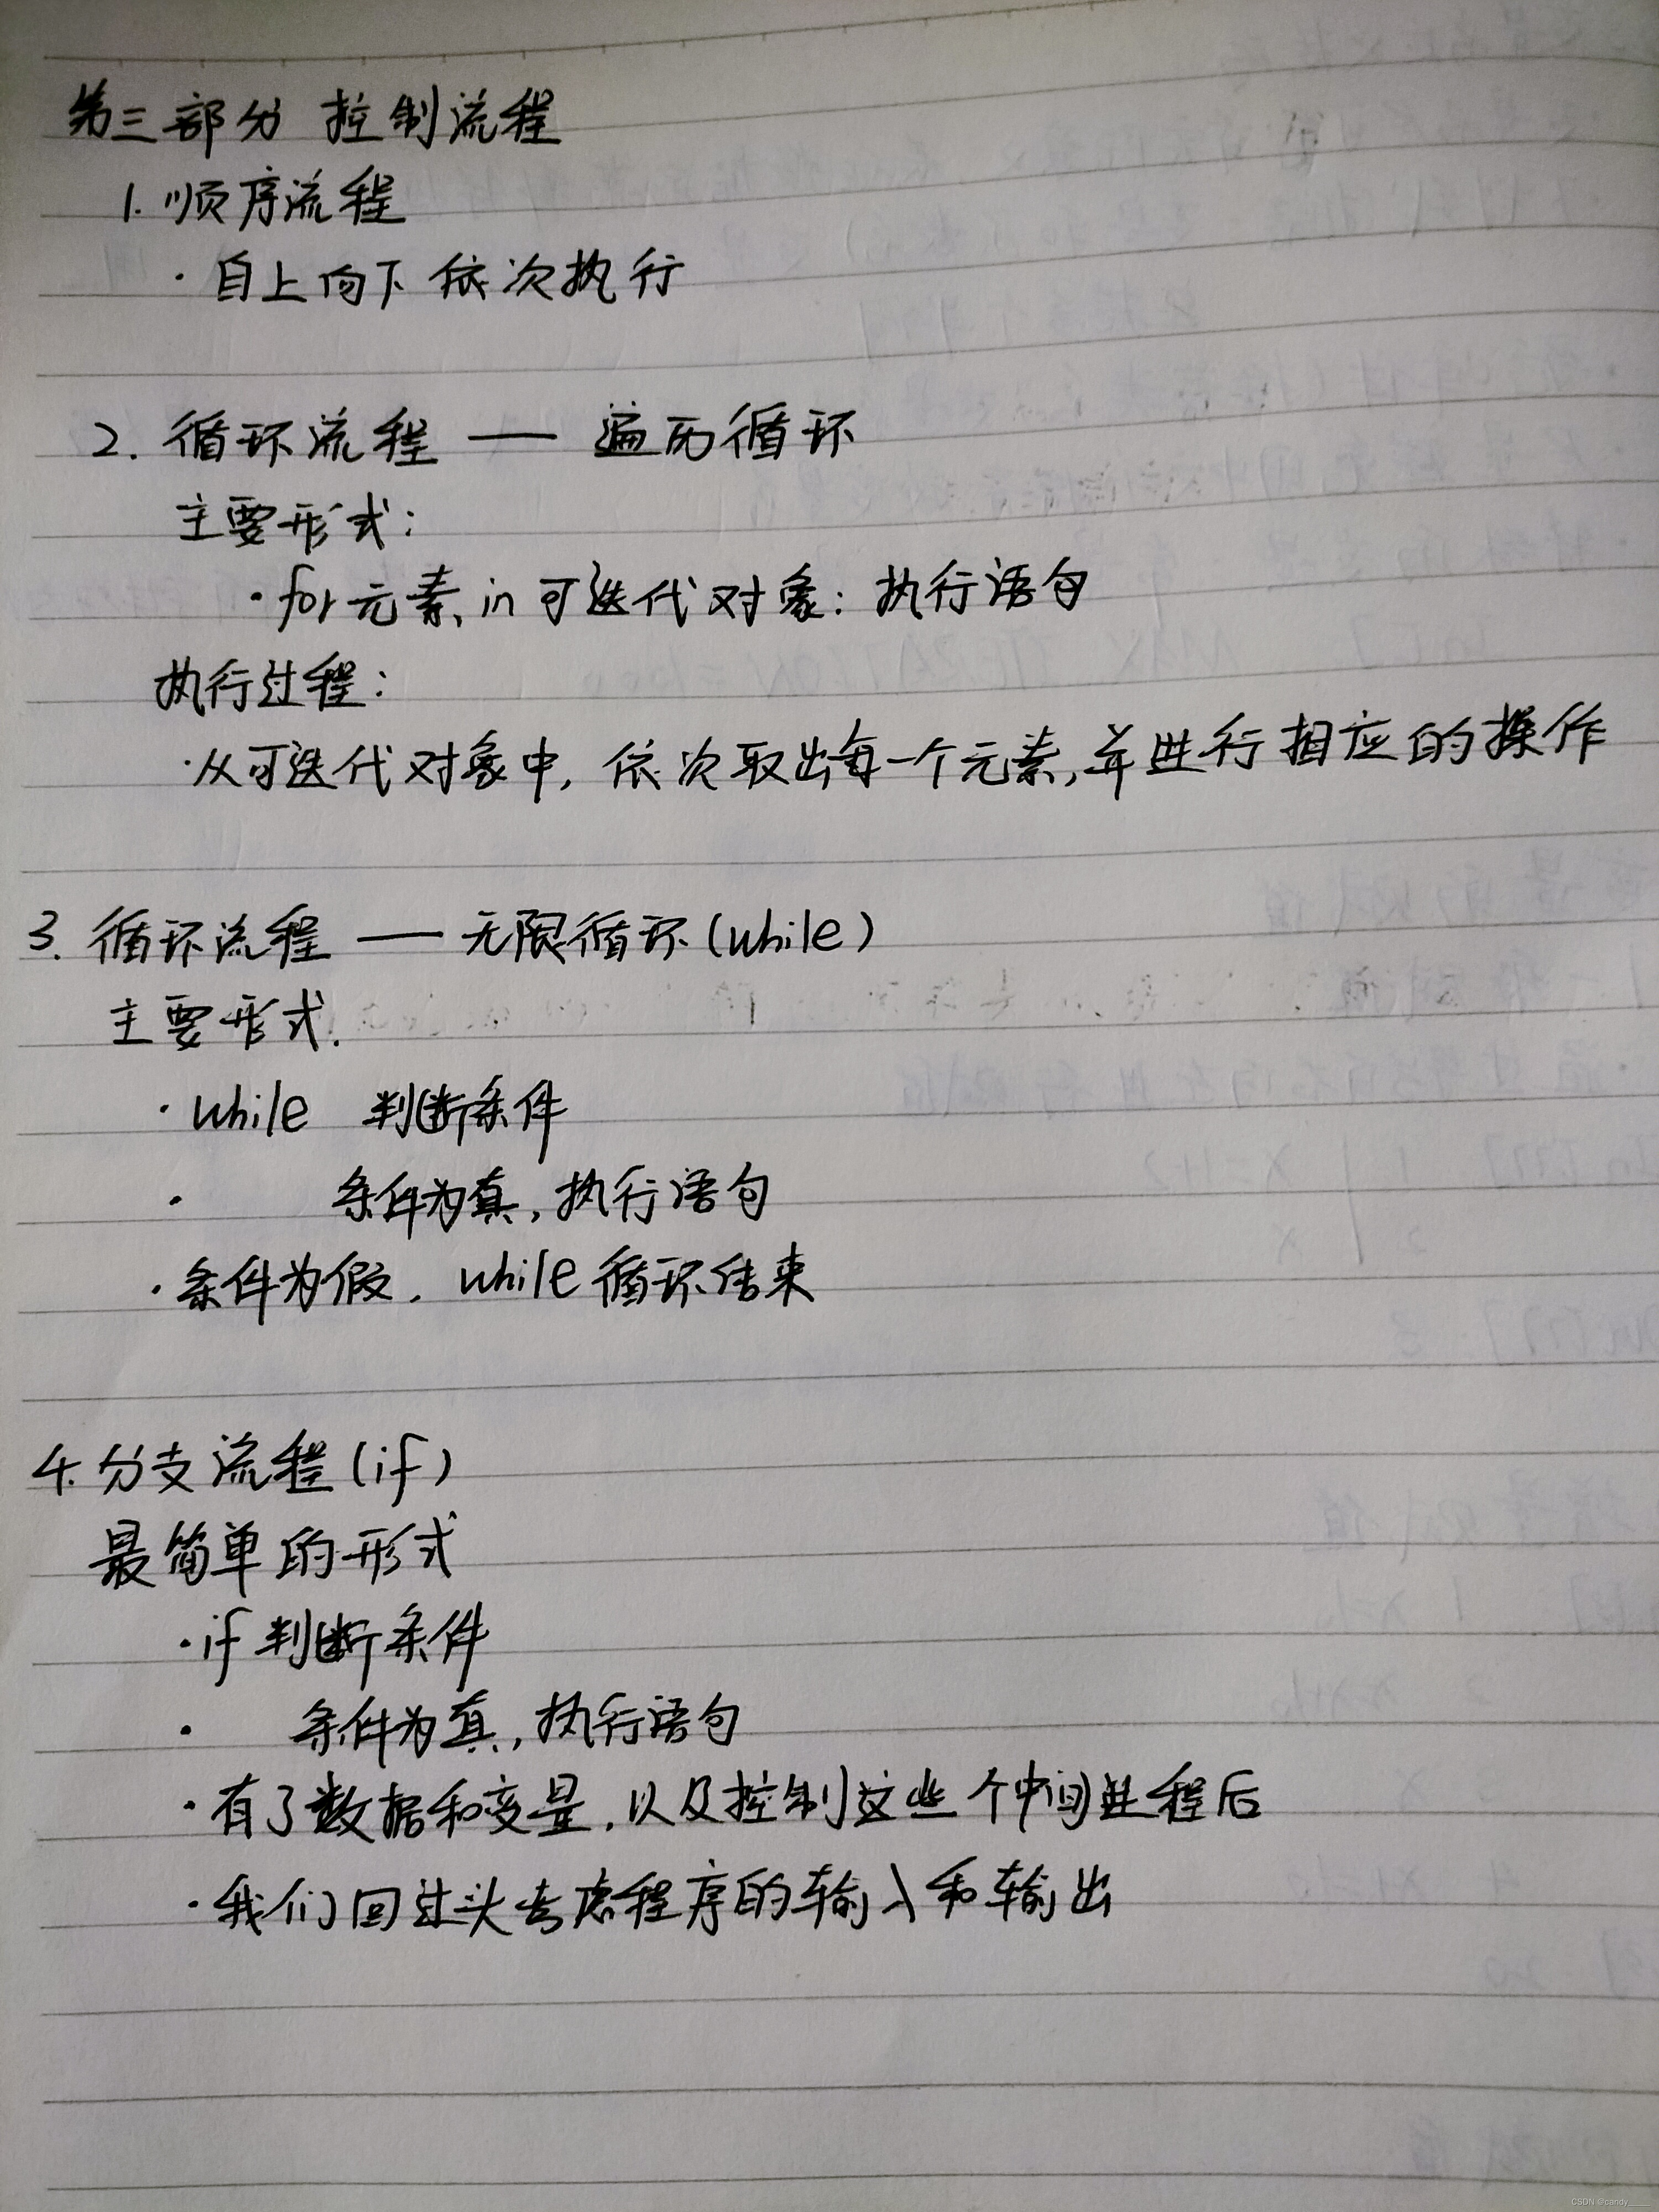 第三部分 控制流程
1. 顺序流程
· 自上向下 依次执行
2. 循环流程 —— 遍历循环
主要形式:
· for 元素 in 可迭代对象: 执行语句
执行过程:
· 从可迭代对象中, 依次取出每一个元素, 并进行相应的操作
3. 循环流程 —— 无限循环(while)
主要形式.
· while 判断条件
· 条件为真, 执行语句
· 条件为假. while循环结束
4. 分支流程(if)
最简单的形式
· if 判断条件
· 条件为真, 执行语句
· 有了数据和变量. 以及控制这些个中间进程后
· 我们回过头去考虑程序的输入和输出
CSDN @candy_____